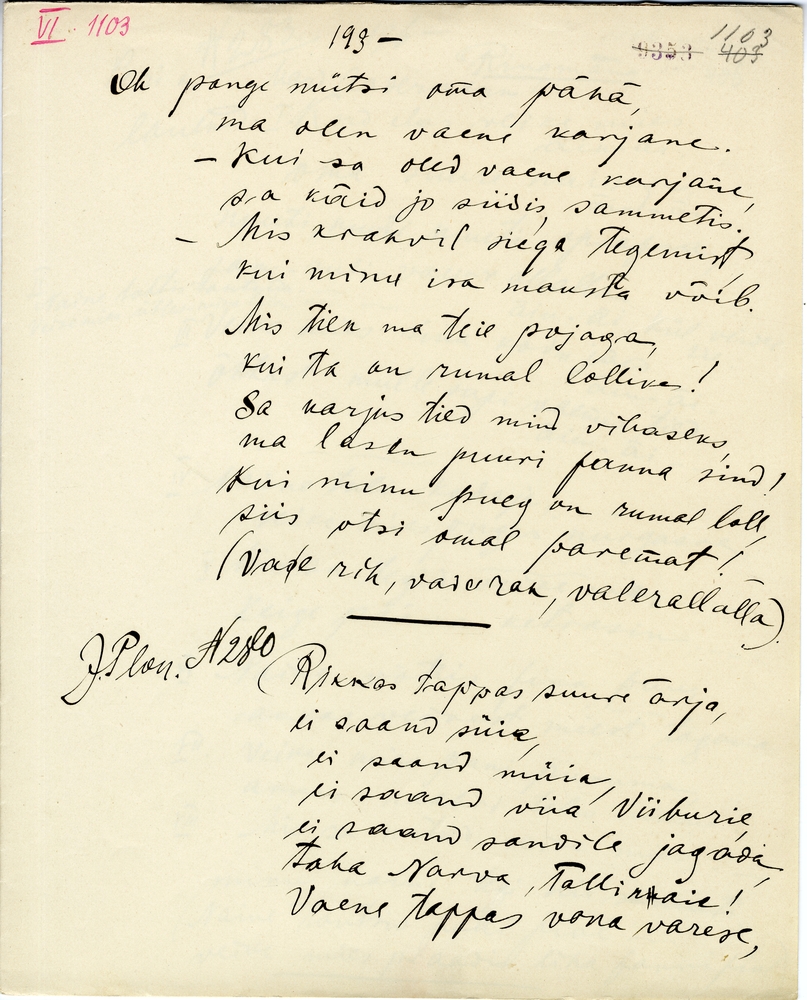 VI. 1103
193 –
9353
1103
403
Oh pange mütsi oma pähä,
ma olen vaene karjane.
– Kui sa oled vaene karjane,
sa käid jo siidis, sammetis.
– Mis krahvil siega tegemist,
kui minu isa mausta võib.
Mis tien ma teie pojaga,
kui ta on rumal lollike!
Sa karjus tied mind vihaseks,
ma lasen puuri panna sind!
Kui minu pueg on rumal loll,
siis otsi omal paremat!
(Vade rih, vade rah, valerallalla).
J. Ploen. N 280
Rikkas tappas suure ärja,
ei saand süia,
ei saand müia,
ei saand viia Viiburie,
ei saand sandile jagada,
taha Narva, Tallinnaie!
Vaene tappas vana varese,